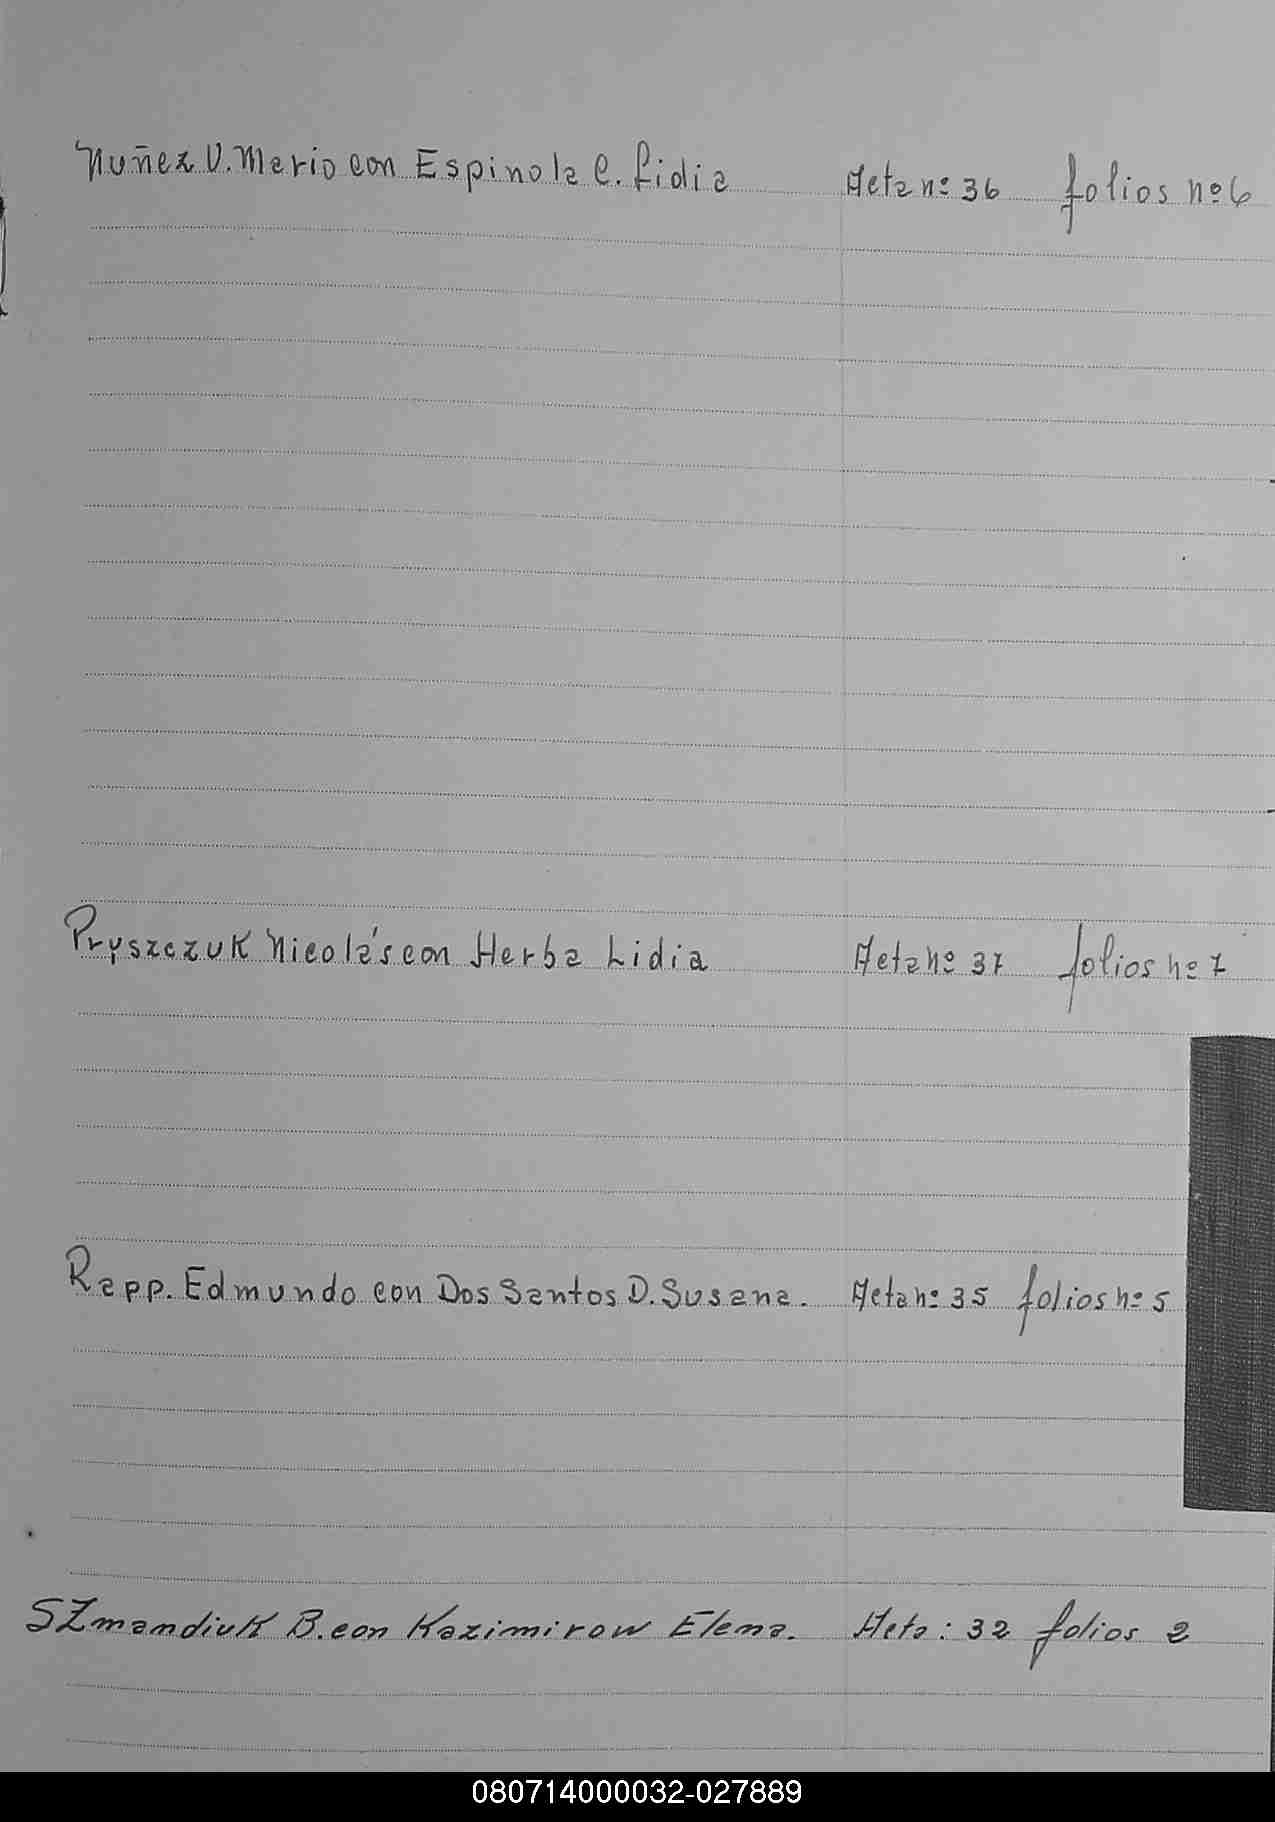 Nuñez V. Mario con Espinola C. Lidia Acta nº 36 folios nº 6
Pryszczuk Nicolás con Herba Lidia Acta nº 37 folios nº 7
Rapp. Edmundo con Dos Santos D. Susana. Acta nº 35 folios nº 5
SZmandiuk B. con Kazimirow Elena. Acta: 32 folios 2
080714000032-027889